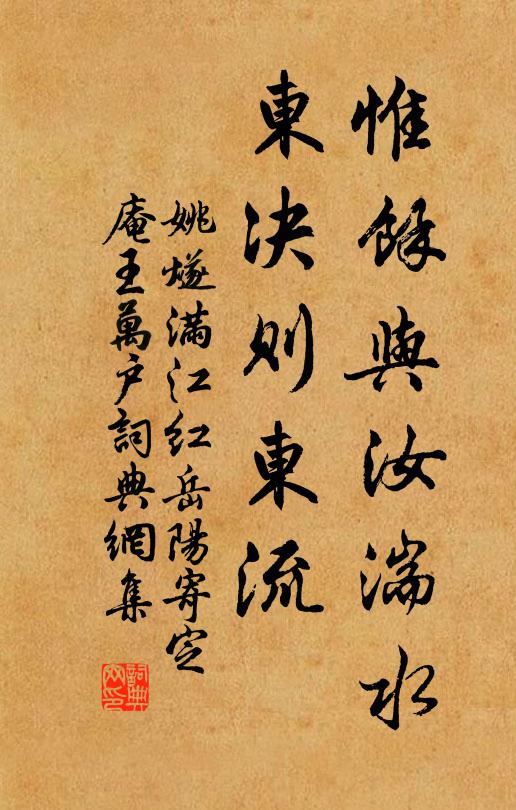 惟餘與汝湍水
東决則東流
姚燧满江红岳陽寄定
庵王萬户詞典網集
詞典
网印